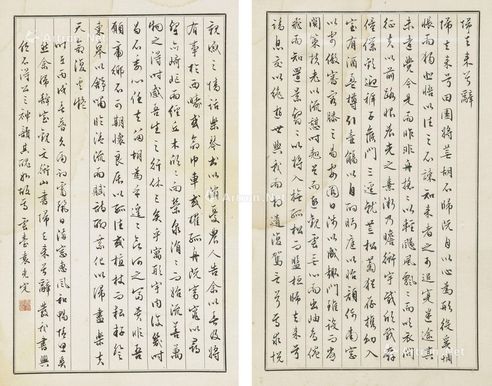 歸去來兮辭
歸去來兮田園將蕪胡不歸既自以心為形役奚惆
悵而獨悲悟以往之不諫知來者之可追寔迷途其
未遠覺今是而昨非舟搖搖以輕颺風飄飄而吹衣問
征夫以前路恨晨光之熹微乃瞻衡宇載欣載奔
僮僕歡迎稚子候門三逕就荒松菊猶存攜幼入
室有酒盈樽引壺觴以自酌眄庭柯以怡顏倚南窗
以寄傲審容膝之易安園日涉以成趣門雖設而常
關策扶老以流憩時矯首而遐觀雲無心以出岫鳥倦
飛而知還景翳翳以將入撫孤松而盤桓歸去來兮
請息交以絕遊世與我而相遺復駕言兮焉求悅
親戚之情話樂琴書以消憂農人告余以春及將
有事於西疇或命巾車或棹孤舟既窈窕以尋
壑亦崎嶇而經丘木欣欣而向榮泉涓涓而始流善萬
物之得時感吾生之行休已矣乎寓形宇內復幾時
曷不委心任去留胡為乎遑遑欲何之富貴非吾
願帝鄉不可期懷良辰以孤往或植杖而耘耔登
東皋以舒嘯臨清流而賦詩聊乘化以歸盡樂夫
天命復奚疑
文衡山書歸去來兮辭
袁克定